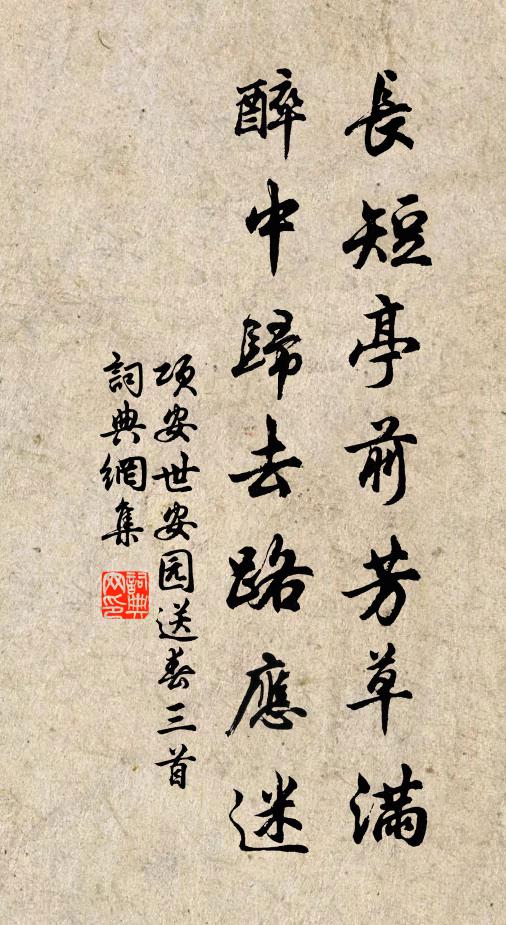 長短亭前芳草滿
醉中歸去路應迷
项安世安园送春三首
詞典網集
詞典網印